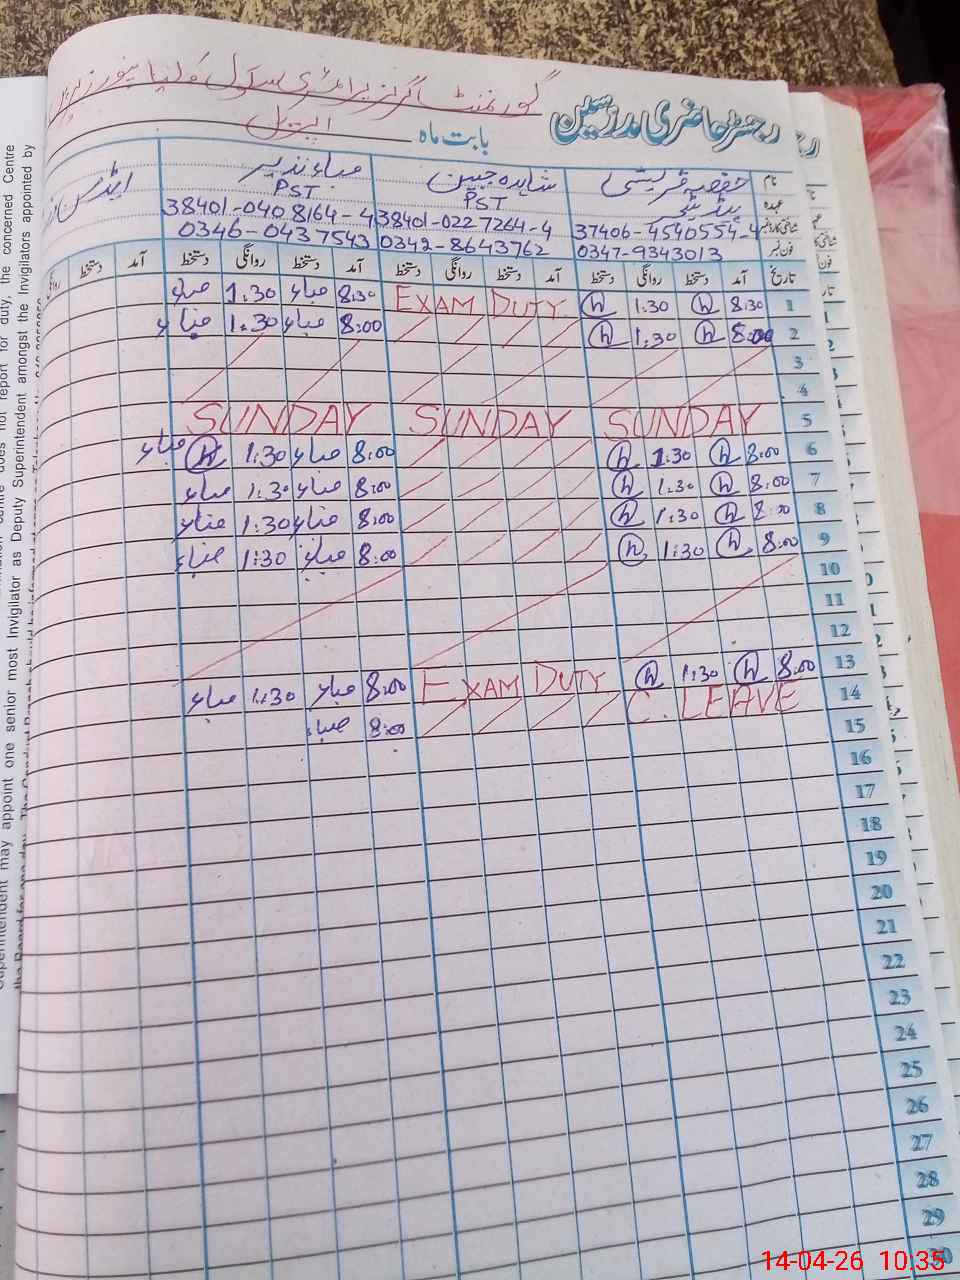 رجسٹر حاضری مدرسین
گورنمنٹ گرلز پرائمری سکول
بابت ماہ اپریل
نام
شاہدہ جبین
صباء نذیر
عہدہ
PST
PST
شناختی کارڈ نمبر 37406-4540554-4 38401-0227264-4 38401-0408164-4
فون نمبر 0347-9343013 0342-8643762 0346-0437543
تاریخ آمد دستخط روانگی دستخط آمد دستخط روانگی دستخط آمد دستخط روانگی دستخط آمد دستخط روانگی
1 8:30 h 1:30 h EXAM DUTY 8:30 صباء 1.30 صباء
2 8:00 h 1.30 h 8:00 صباء 1.30 صباء
3
4
5 SUNDAY SUNDAY SUNDAY
6 8:00 h 1:30 h 8:00 صباء 1:30 h صباء
7 8:00 h 1:30 h 8:00 صباء 1:30 صباء
8 8:00 h 1:30 h 8:00 صباء 1:30 صباء
9 8:00 h 1:30 h 8:00 صباء 1:30 صباء
10
11
12
13 8:00 h 1:30 h EXAM DUTY 8:00 صباء 1:30 صباء
14 C. LEAVE 8:00 صباء
15
16
17
18
19
20
21
22
23
24
25
26
27
28
29
30
intendent may appoint one senior most Invigilator as Deputy Superintendent amongst the Invigilators appointed by
does not report for duty, the concerned Centre
14-04-26 10:35